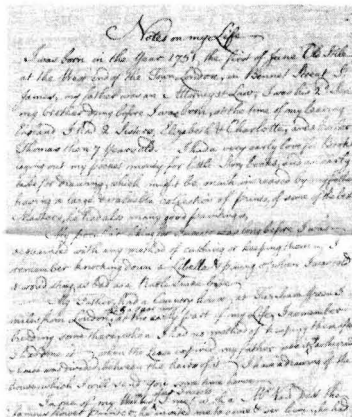 Notes on my Life
I was born in the Year 1751, the first of June Old Stile
at the West End of the Town London, in Bennet Street St
James's, my father was an Attorney at Law, I was his 2d Son
my brother dying before I was born, at the time of my leaving
England I had 2 Sisters, Elizabeth & Charlotte, and a brother
Thomas then 7 Years old. I had a very early love for Books
laying out my pocket money for little Story books, and an early
taste for drawing, which might be much increased by my father
having a large & valuable collection of prints, of some of the best
Masters, he had also many good paintings,
My first for Insects was long before I was
acquainted with any method of catching or keeping them. I
remember knocking down a Libella & pining it, when I was told
it would sting as bad as a Rattle Snake
My Father had a Country house, at
miles from London, at the early part of my Life, I remember
breeding some there, when I had no method of keeping them after
I had done it.
house was divided between the heirs of it I have a drawing of the
house which I will send you some time hence
In one of my
famous flower Painter, he invited me to come & see